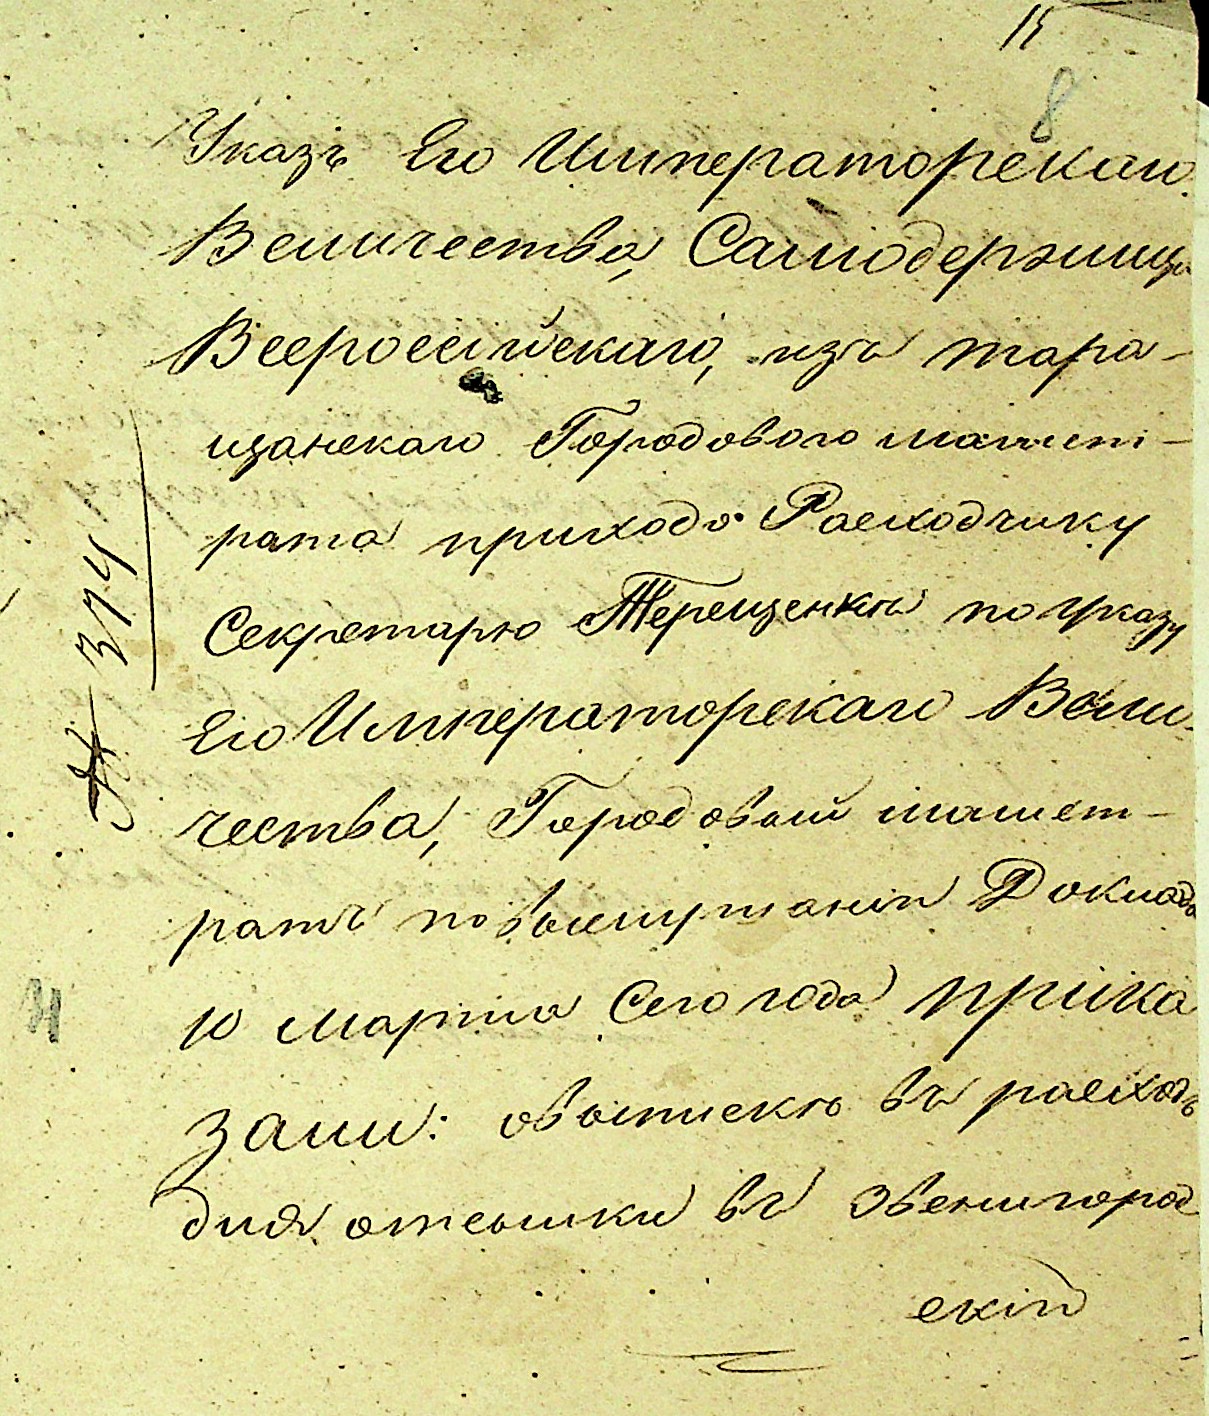 15
8
Указъ Его Императорскаго
Величества, Самодержица
Всероссійскаго, изъ тара-
щанскаго Городового магист-
рата приходо Расходчику
Секретарю Терещенкѣ по указу
Его Императорскаго Вели-
чества, Городовый магист-
ратъ по выслушаніи Доклада
10 марта Сего года прика
зали: овыпискѣ въ расходъ
для отсылки въ Звенигород
скій
№ 374